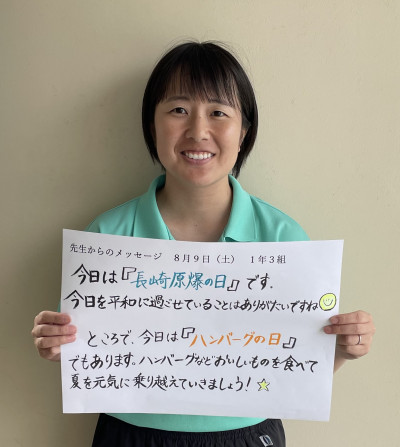 先生からのメッセージ 8月9日（土） 1年3組
今日は『長崎原爆の日』です．
今日を平和に過ごせていることはありがたいですね
ところで、今日は『ハンバーグの日』
でもあります。ハンバーグなどおいしいものを食べて
夏を元気に乗り越えていきましょう！☆